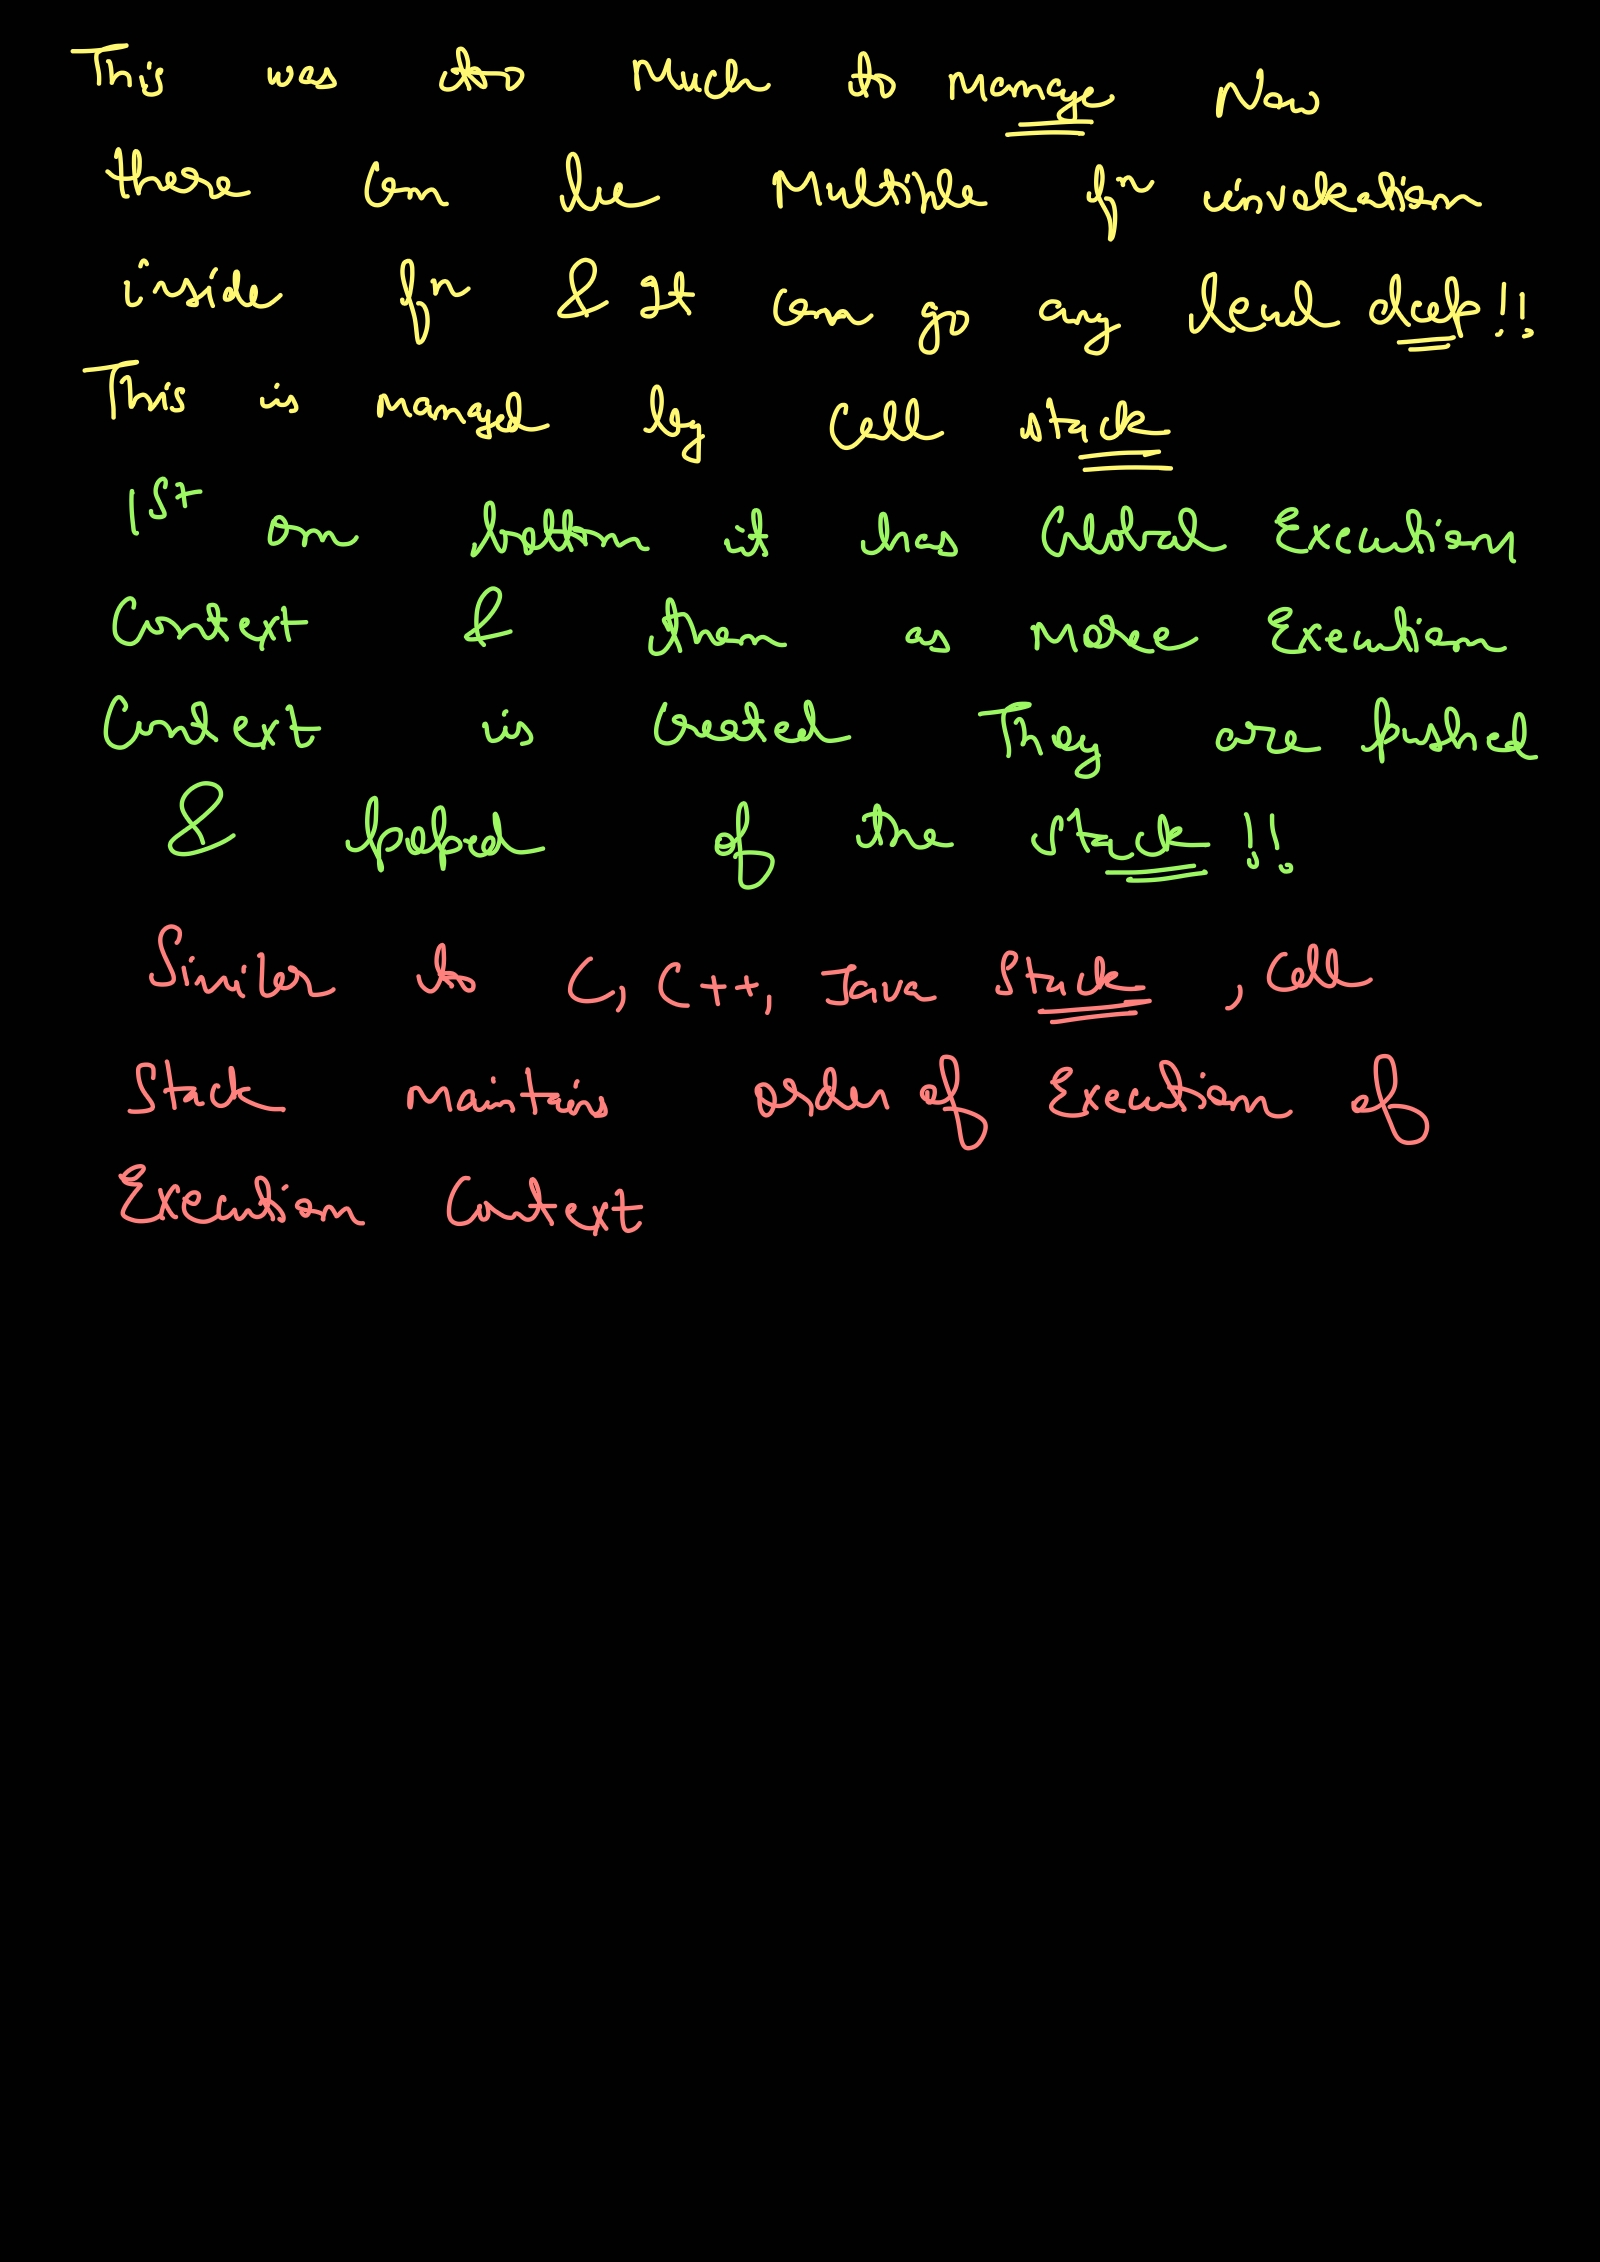 This was too Much to Manage Now
there can be Multiple fn invokation
inside fn & It can go any level deep!!
This is Managed by Call stack
1st on bottom it has Global Execution
Context & then as More Execution
Context is created They are pushed
& poped of the stack!!
Similar to C, C++, Java Stack, Call
Stack Maintains order of Execution of
Execution Context